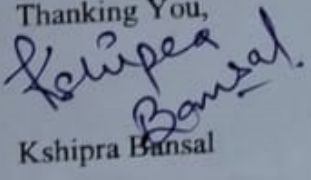 Thanking You,
Kshipra
Bansal
Kshipra Bansal